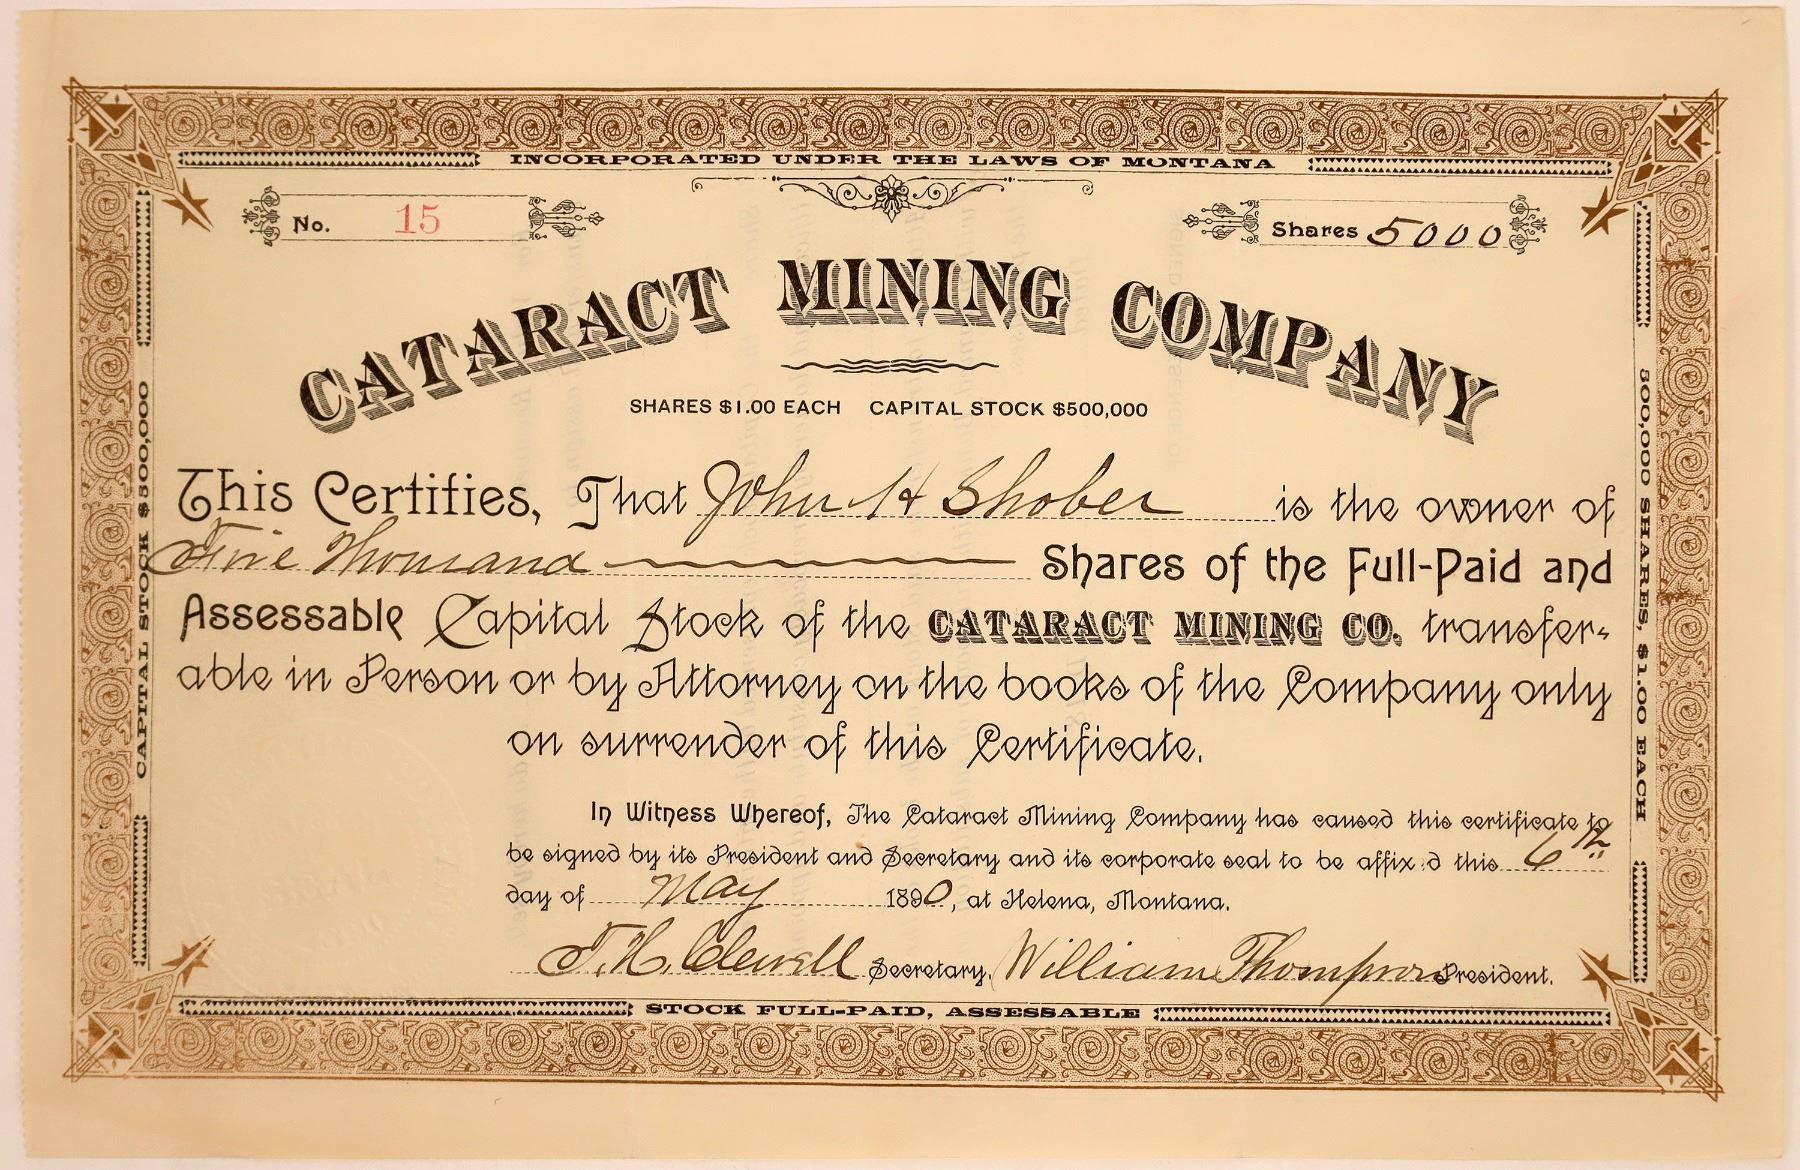 INCORPORATED UNDER THE LAWS OF MONTANA
No. 15
Shares 5000
CATARACT MINING COMPANY
SHARES $1.00 EACH CAPITAL STOCK $500,000
This Certifies, That John H Shober is the owner of
Five Thousand Shares of the Full-Paid and
Assessable Capital Stock of the CATARACT MINING CO. transfer-
able in Person or by Attorney on the books of the Company only
on surrender of this Certificate.
In Witness Whereof, The Cataract Mining Company has caused this certificate to
be signed by its President and Secretary and its corporate seal to be affix d this 6th
day of May 1890, at Helena, Montana.
T. H. Clewell Secretary. William Thompson President.
STOCK FULL-PAID, ASSESSABLE
CAPITAL STOCK $500,000
500,000 SHARES, $1.00 EACH